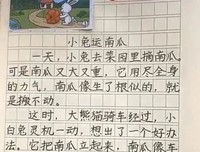 小兔运南瓜
一天，小兔去菜园里摘南瓜。
可是南瓜又大又重，它用尽全身
的力气，南瓜像生了根似的，就
是搬不动。
这时，大熊猫骑车经过，小
白兔灵机一动，想出了一个好办
法。它把南瓜立起来，南瓜像车